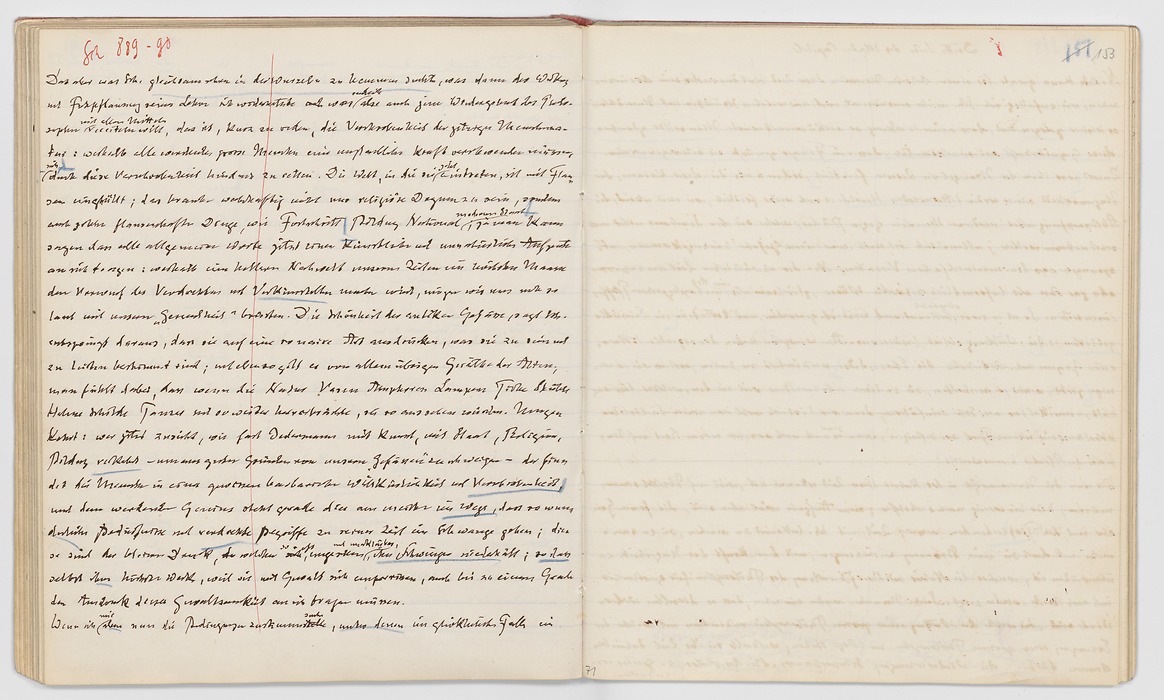 Sch 889-90
151 153
Das aber was Sch. gleichsam schon in den Wurzeln zu hemmen suchte, was dann der Wirkung
und Fortpflanzung seiner Lehre sich widersetzte und was endlich also auch jene Wiedergeburt des Philo-
sophen mit allen Mitteln vereiteln will, das ist, kurz zu reden, die Verschrobenheit der jetzigen Menschenna-
tur: weshalb alle werdenden grossen Menschen eine unglaubliche Kraft verschwenden müssen,
durch diese Verschrobenheit hindurch zu retten. Die Welt, in die sie jetzt eintreten, ist mit Flau-
sen eingehüllt; das brauchen wahrhaftig nicht nur religiöse Dogmen zu sein, sondern
auch solche flausenhafte Dinge, wie Fortschritt Bildung National moderner Staat ja man kann
sagen dass alle allgemeinen Worte jetzt einen künstlichen und unnatürlichen Aufputz
an sich tragen: weshalb eine hellere Nachwelt unseren Zeiten im höchsten Maasse
den Vorwurf des Verdrehten und Verkünstelten machen wird, mögen wir uns noch so
laut mit unserer „Gesundheit“ brüsten. Die Schönheit der antiken Gefässe, sagt Sch.
entspringt daraus, dass sie auf eine so naive Art ausdrücken, was sie zu sein und
zu leisten bestimmt sind; und ebenso gilt es von allem übrigen Geräthe der Alten,
man fühlt dabei, dass wenn die Natur Vasen Amphoren Lampen Tische Stühle
Helme Schilde Panzer und so weiter hervorbrächte, sie so aussehen würden. Umge-
kehrt: wer jetzt zusieht, wie fast Jedermann mit Kunst, mit Staat, Religion,
Bildung verkehrt — um aus guten Gründen von unseren „Gefässen“ zu schweigen — der fin-
det die Menschen in einer gewissen barbarischen Willkürlichkeit und Verschrobenheit,
und dem werdenden Genius steht gerade dies am meisten im Wege, dass so wun-
derliche Bedürfnisse und verdrehte Begriffe zu seiner Zeit im Schwange gehen; die-
se sind der bleierne Druck, der so oft, ungesehen und unerklärbar, den Schwingen niederhält; so dass
selbst ihre höchsten Werke, weil sie mit Gewalt sich emporrissen, auch bis zu einem Grade
den Ausdruck dieser Gewaltsamkeit an sich tragen müssen.
Wenn ich mir nun die Bedingungen zusammensuche, unter denen im glücklichsten Falle ein
71